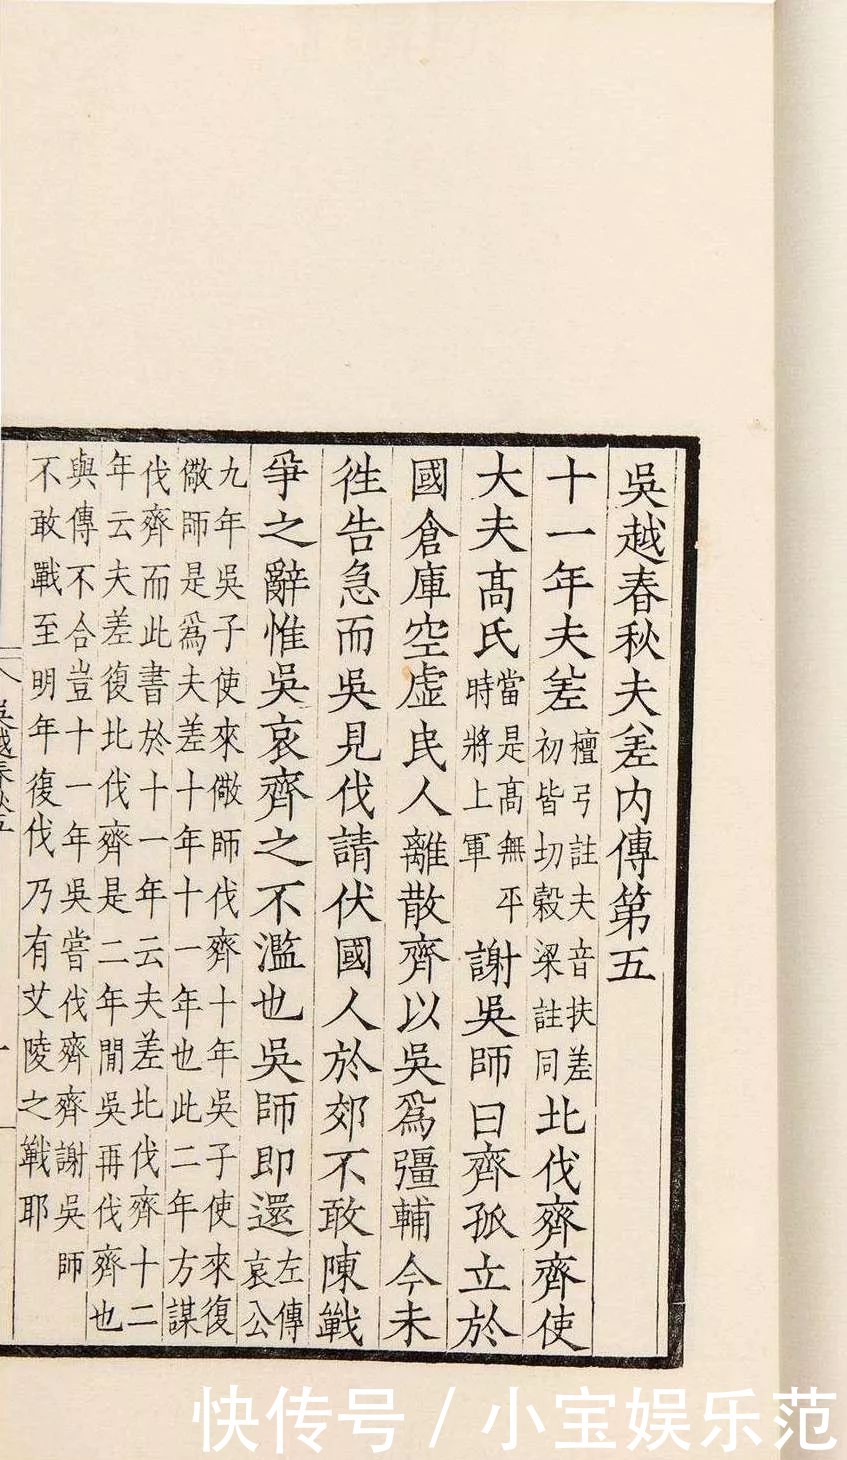 吳越春秋夫差內傳第五
十一年夫差檀弓註夫音扶差初皆切榖梁註同北伐齊齊使
大夫髙氏當是髙無平時將上軍謝吳師曰齊孤立於
國倉庫空虛民人離散齊以吳爲彊輔今未
徃告急而吳見伐請伏國人於郊不敢陳戰
爭之辭惟吳哀齊之不濫也吳師即還左傳哀公
九年吳子使來儆師伐齊十年吳子使來復
儆師是爲夫差十年十一年也此二年方謀
伐齊而此書於十一年云夫差北伐齊十二
年云夫差復北伐齊是二年閒吳再伐齊也
與傳不合豈十一年吳嘗伐齊齊謝吳師
不敢戰至明年復伐乃有艾陵之戰耶
快传号 / 小宝娱乐范